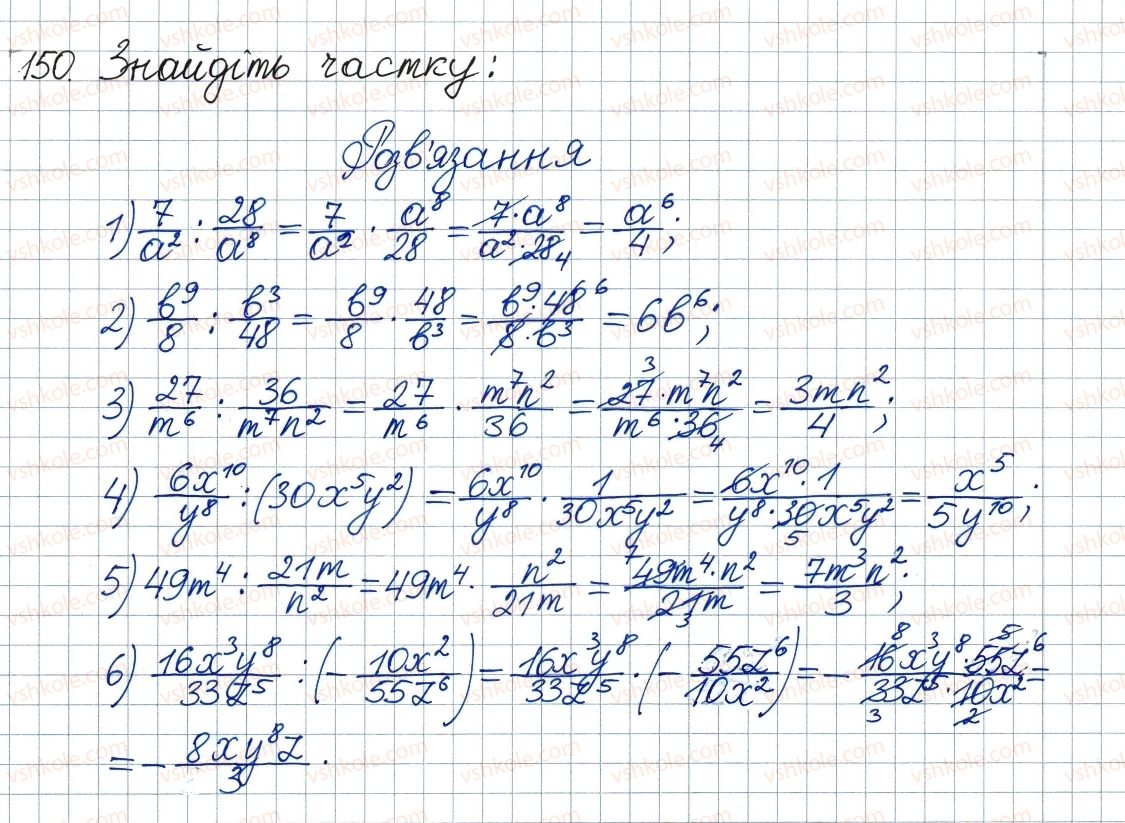 150. Знайдіть частку:
Розв'язання
1) 7/a² : 28/a⁸ = 7/a² · a⁸/28 = 7·a⁸/a²·28 4 = a⁶/4;
2) b⁹/8 : b³/48 = b⁹/8 · 48/b³ = b⁹·48 6/8·b³ = 6b⁶;
3) 27/m⁶ : 36/m⁷n² = 27/m⁶ · m⁷n²/36 = 3 27·m⁷n²/m⁶·36 4 = 3mn²/4;
4) 6x¹⁰/y⁸ : (30x⁵y²) = 6x¹⁰/y⁸ · 1/30x⁵y² = 6x¹⁰·1/y⁸·30x⁵y² 5 = x⁵/5y¹⁰;
5) 49m⁴ : 21m/n² = 49m⁴ · n²/21m = 7 49m⁴·n²/21m 3 = 7m³n²/3;
6) 16x³y⁸/33z⁵ : (- 10x²/55z⁶) = 16x³y⁸/33z⁵ · (- 55z⁶/10x²) = - 8 16x³y⁸·55z⁶ 5/33z⁵·10x² 3 2 =
= - 8xy⁸z/3.